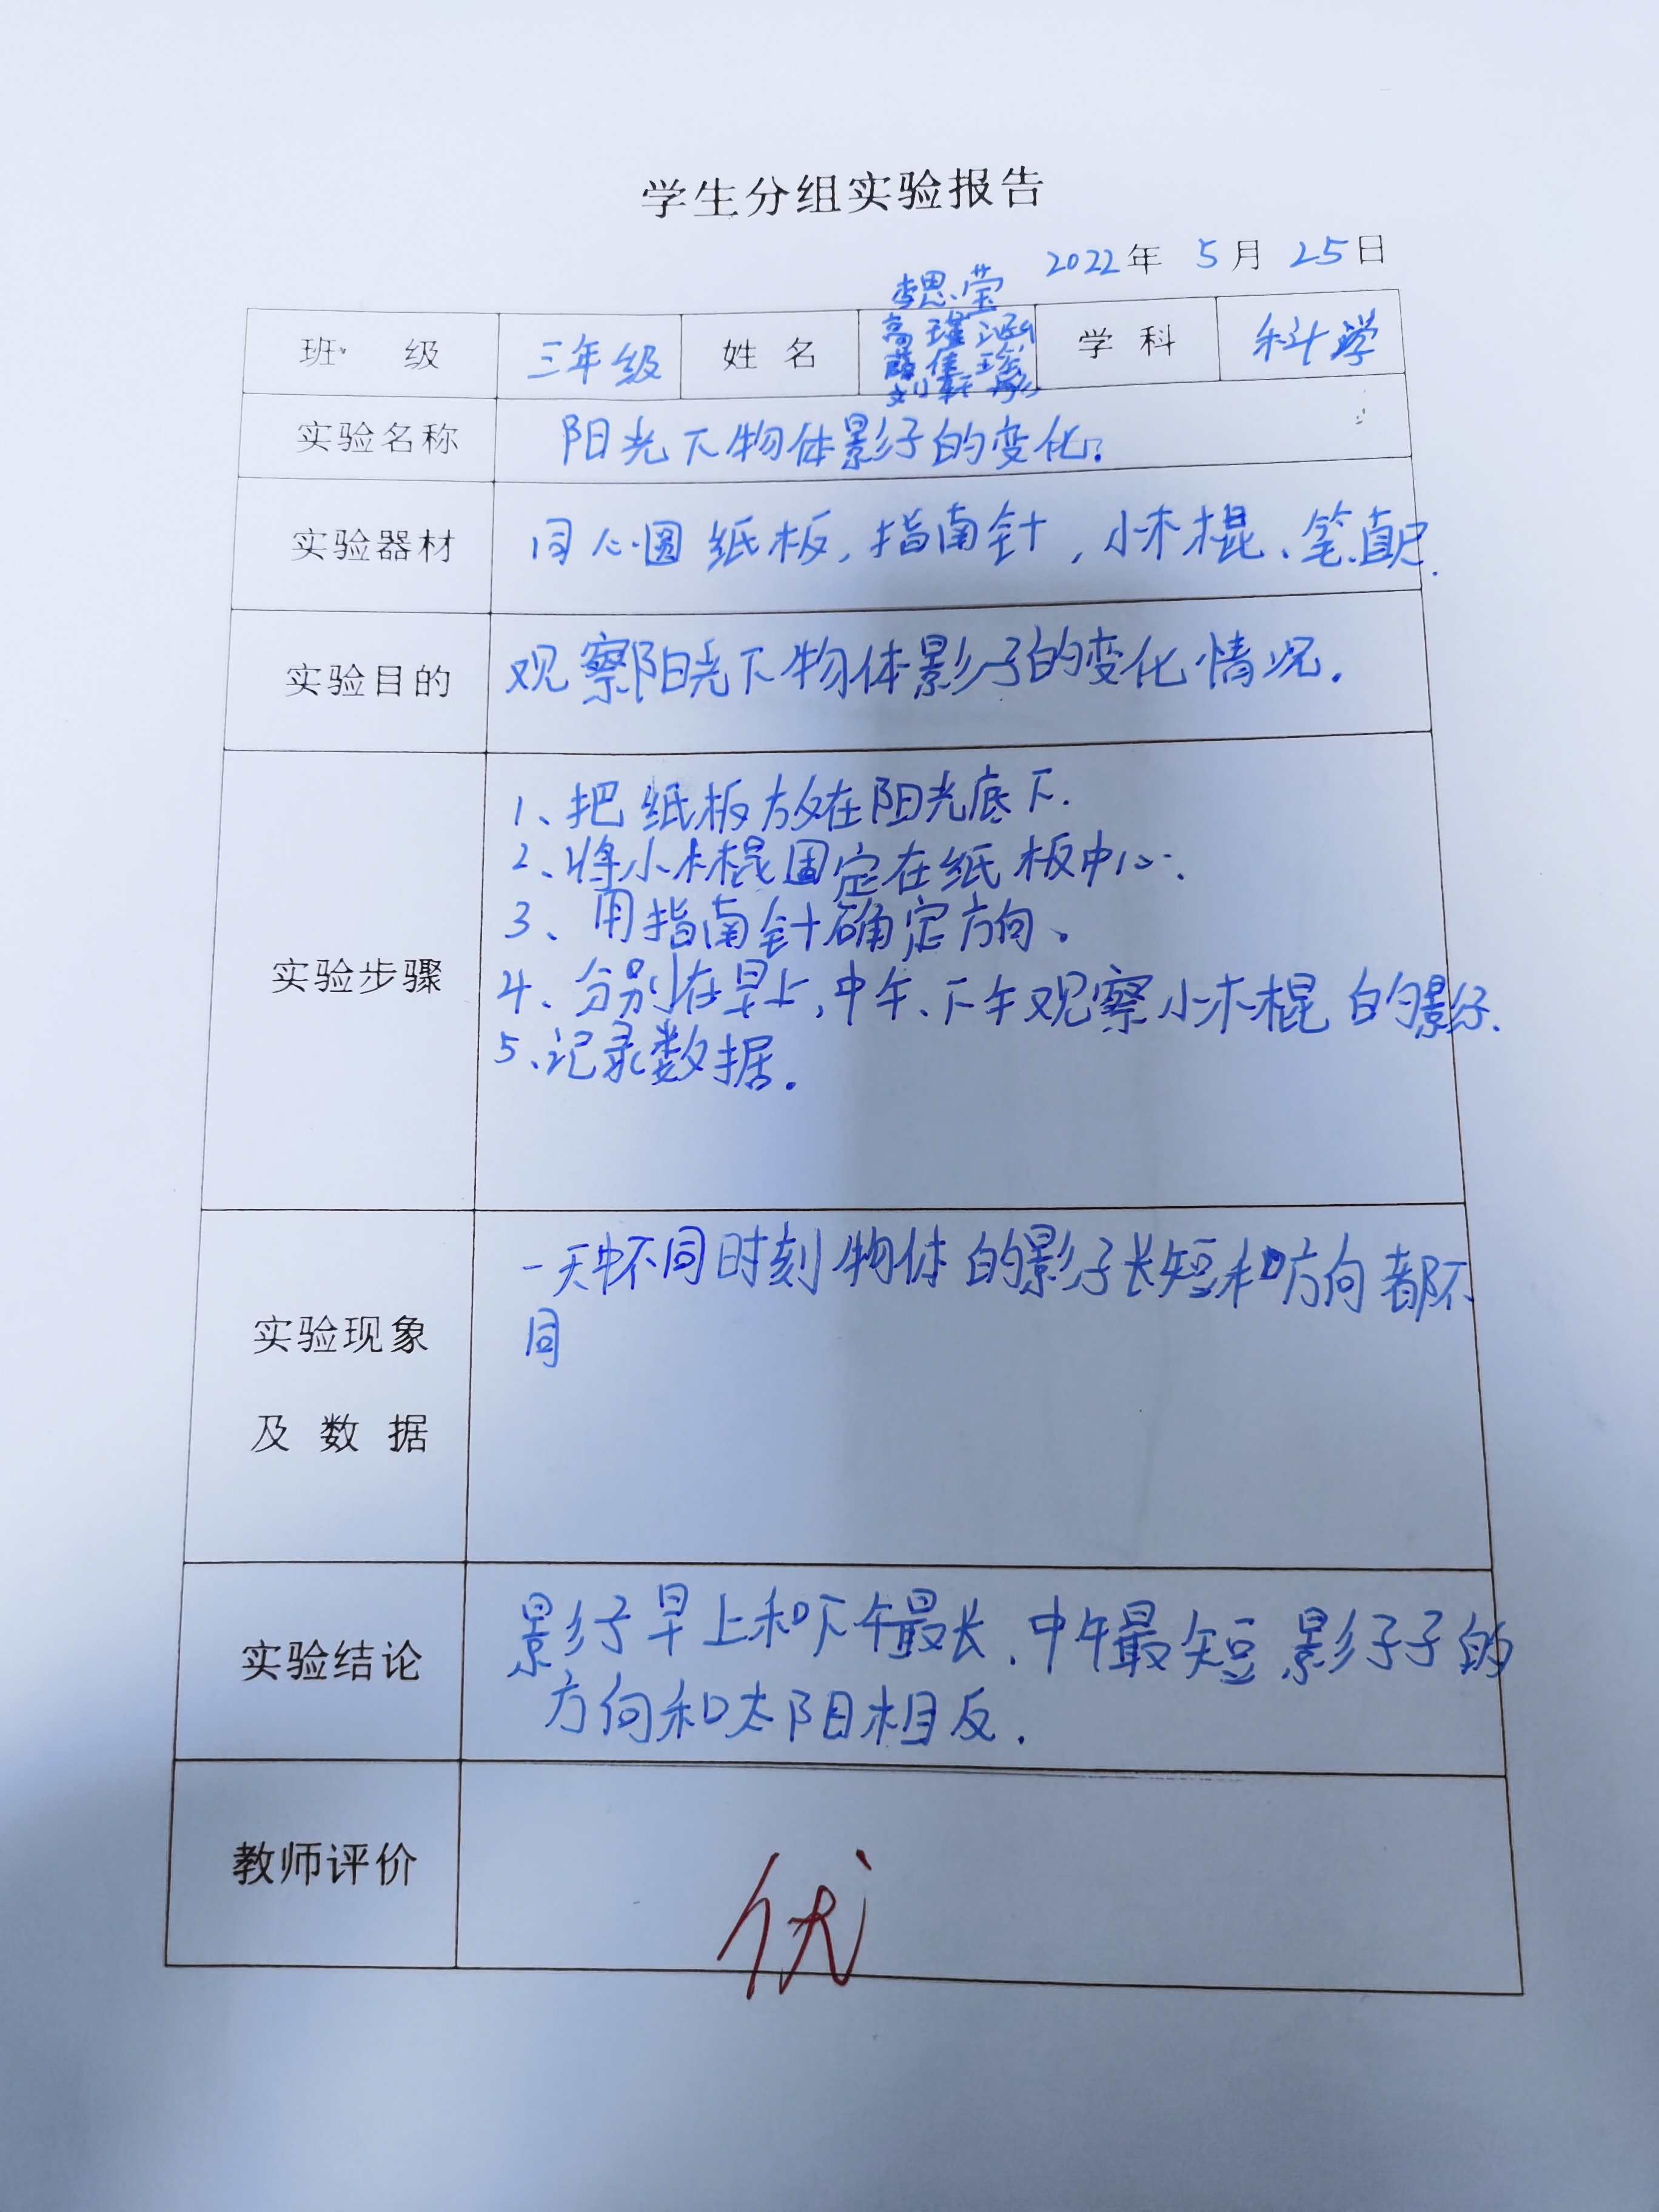 学生分组实验报告
2022年 5月 25日
班 级 三年级 姓 名 李思莹 学 科 科学
高瑾涵
薛佳瑶
刘轩彤
实验名称 阳光下物体影子的变化.
实验器材 同心圆纸板,指南针,小木棍、笔、直尺.
实验目的 观察阳光下物体影子的变化情况.
实验步骤
1、把纸板放在阳光底下.
2、将小木棍固定在纸板中心.
3、用指南针确定方向、
4、分别在早上,中午、下午观察小木棍的影子.
5、记录数据.
实验现象
及 数 据
一天中不同时刻物体的影子长短和方向都不
同
实验结论
影子早上和下午最长.中午最短影子子的
方向和太阳相反.
教师评价
优